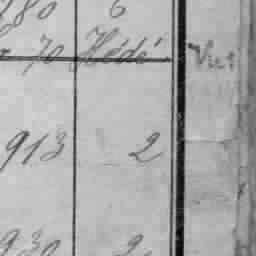 180 6
70 Hédé
Vu
913 2
930 2